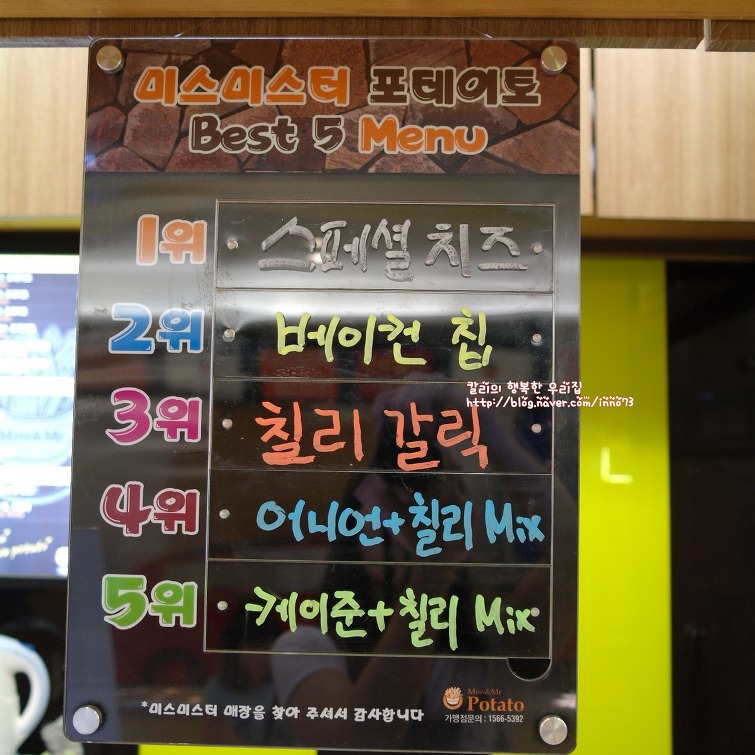 미스미스터 포테이토
Best 5 Menu
1위 스페셜 치즈
2위 베이컨 칩
칼리의 행복한 우리집
http://blog.naver.com/inno73
3위 칠리 갈릭
4위 어니언+칠리 Mix
5위 케이준+칠리 Mix
Miss&Mr
Potato
가맹점문의 : 1566-5392
*미스미스터 매장을 찾아 주셔서 감사합니다